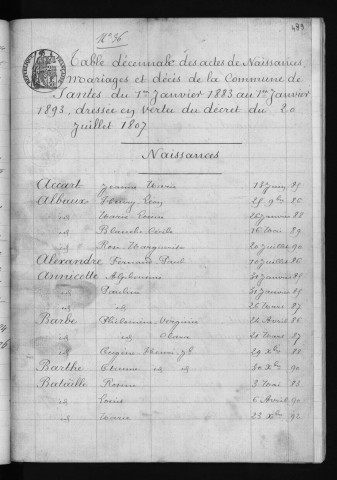 489
N° 36
Table décennale des actes de Naissances,
Mariages et décès de la Commune de
Santes du 1er Janvier 1883 au 1er Janvier
1893, dressée en vertu du décret du 20
Juillet 1807
Naissances
Accart Jeanne Marie 85
Albaux Henry Léon 25 9bre 86
id Marie Louise 26 Janvier 88
id Blanche 16 Mai 89
id Rose Marguerite 20 Juillet 90
Alexandre Fernand Paul 10 Juillet 86
Annicotte Alphonsine 31 Janvier 85
id Pauline 31 Janvier 85
id id 26 Mars 87
Barbe Philomène Virginie 24 Avril 86
id Clara 21 Mars 87
id Eugène Henri Jh 29 Xbre 88
Barthe Etienne id id 30 Xbre 90
Bataille Rosine 3 Mai 83
id Louis 6 Avril 90
id 23 Xbre 92